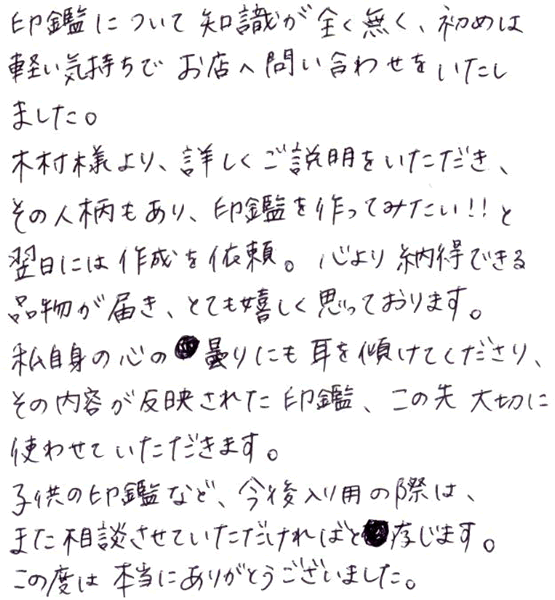 印鑑について知識が全く無く、初めは
軽い気持ちでお店へ問い合わせをいたし
ました。
木村様より、詳しくご説明をいただき、
その人柄もあり、印鑑を作ってみたい!!と
翌日には作成を依頼。心より納得できる
品物が届き、とても嬉しく思っております。
私自身の心の曇りにも耳を傾けてくださり、
その内容が反映された印鑑、この先大切に
使わせていただきます。
子供の印鑑など、今後入り用の際は、
また相談させていただければと存じます。
この度は本当にありがとうございました。